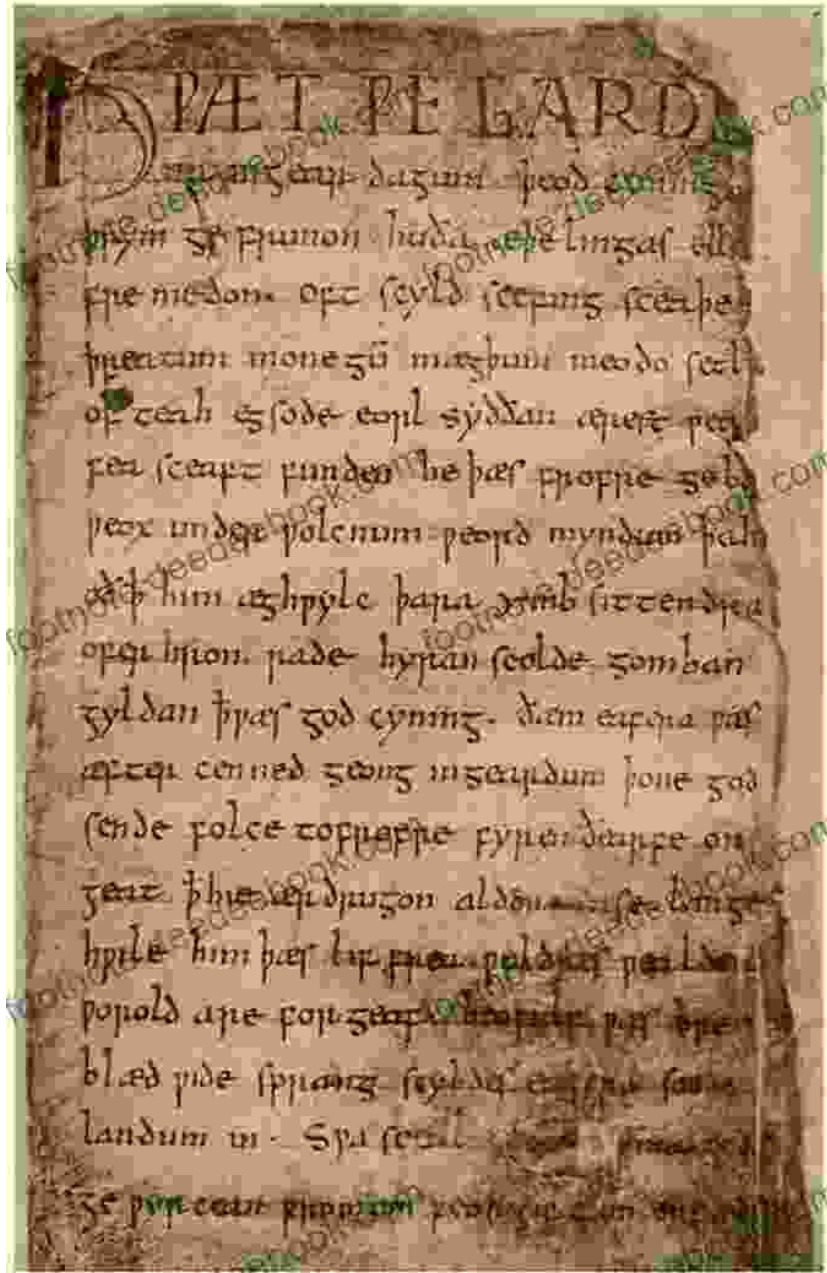 HǷÆT ǷE GARD
na ingear dagum þeod cyninga
þrym ge frunon huða æþelingas ellen
fre medon. oft scyld scefing sceaþe
þreatum monegū mægþum meodo setla
of teah egsode eorl syððan ærest ƿear
fea sceaft funden he þæs frofre gebad
ƿeox under ƿolcnum ƿeorð myndum þah
oð ꝥ him æghƿylc þara ymb sittendra
ofer hron rade hyran scolde gomban
gyldan ꝥ ƿæs god cyning. ðæm eafera ƿæs
æfter cenned geong ingeardum þone god
sende folce tofrofre fyren ðearfe on
geat ꝥ hie ær drugon aldor ase lange
hƿile him þæs lif frea ƿuldres ƿealdend
ƿorold are forgeaf beoƿulf ƿæs breme
blæd ƿide sprang scyldes eafera
landum in. Sƿa sceal
ge ƿyrcean fromum feoh giftum on
footnote.deedeebook.com